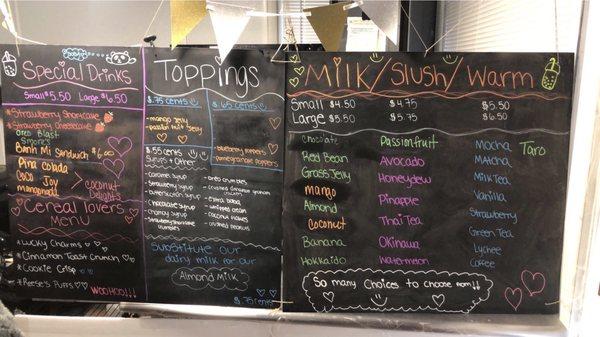 Special Drinks
Small $5.50 Large $6.50
Strawberry Shortcake
Strawberry Cheesecake
Oreo Blast
Smores
Banin Mi Sandwich $6.00
Pina colada
Coco Joy
mangonada
> coconut
Delights
Cereal lovers
Menu
Lucky Charms
Cinnamon Toast Crunch
Cookie Crisp
Reese's Puffs
WOOHOO!!!
Toppings
$.75 cents
- mango jelly
- passion fruit jelly
$.65 cents
- blueberry poppers
- pomegranate poppers
$.55 cents
Syrups + Other
- caramel syrup
- strawberry syrup
- chocolate syrup
- oreo crumbles
- whipped cream
- coconut flakes
- crushed peanuts
Substitute our
dairy milk for our
Almond Milk
$.75 cents
Milk/Slush/Warm
Small $4.50 $4.75 $5.50
Large $5.50 $5.75 $6.50
Chocolate Passionfruit Mocha Taro
Red Bean Avocado Matcha
Grass Jelly Honeydew Milk Tea
mango Pineapple Vanilla
Almond Thai Tea Strawberry
Coconut Okinawa Green Tea
Banana Watermelon Lychee
Hokkaido Coffee
So many Choices to choose from!!